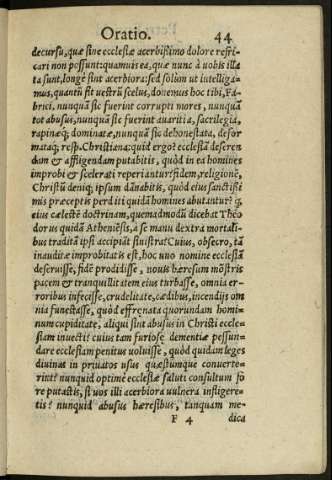 Oratio. 44
decursu, quæ sine ecclesiæ acerbissimo dolore refri-
cari non possunt: quamuis ea, quæ nunc à uobis illa
ta sunt, longè sint acerbiora: sed solùm ut intelliga-
mus, quantũ sit uestrũ scelus, donemus hoc tibi, Fa-
brici, nunquã sic fuerint corrupti mores, nunquã
tot abusus, nunquã sic fuerint auaritia, sacrilegia,
rapinæq; dominatæ, nunquã sic dehonestata, defor
mataq; resp. Christiana: quid ergo? ecclesiã deseren
dam & affligendam putabitis, quòd in ea homines
improbi & scelerati reperiantur? fidem, religionẽ,
Christũ deniq; ipsum dãnabitis, quòd eius sanctissi
mis præceptis perditi quidã homines abutantur? q,
eius cælestẽ doctrinam, quemadmodũ dicebat Theo
dorus quidã Atheniẽsis, à se manu dextra mortali-
bus traditã ipsi accipiãt sinistra? Cuius, obsecro, tã
inauditæ improbitatis est, hoc uno nomine ecclesiã
deseruisse, fidẽ prodidisse, nouis hæresum mõstris
pacem & tranquillitatem eius turbasse, omnia er-
roribus infecisse, crudelitate, cædibus, incendijs om
nia funestasse, quòd effrenata quorundam homi-
num cupiditate, aliqui sint abusus in Christi eccle-
siam inuecti? cuius tam furiosę dementiæ pessun-
dare ecclesiam penitus uoluisse, quòd quidam leges
diuinas in priuatos usus quæstumque conuerte-
rint? nunquid optimè ecclesiæ saluti consultum fo
re putastis, si uos illi acerbiora uulnera infligere-
tis? nunquid abusus hæresibus, tanquam me-
F 4 dica